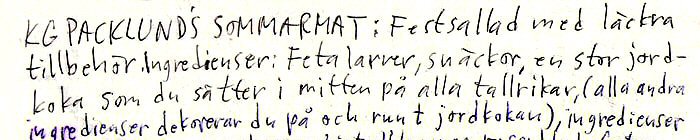 KG PACKLUND'S SOMMARMAT: Festsallad med läckra
tillbehör. Ingredienser: Feta larver, snäckor, en stor jord-
koka som du sätter i mitten på alla tallrikar, (alla andra
ingredienser dekorerar du på och runt jordkokan), ingredienser